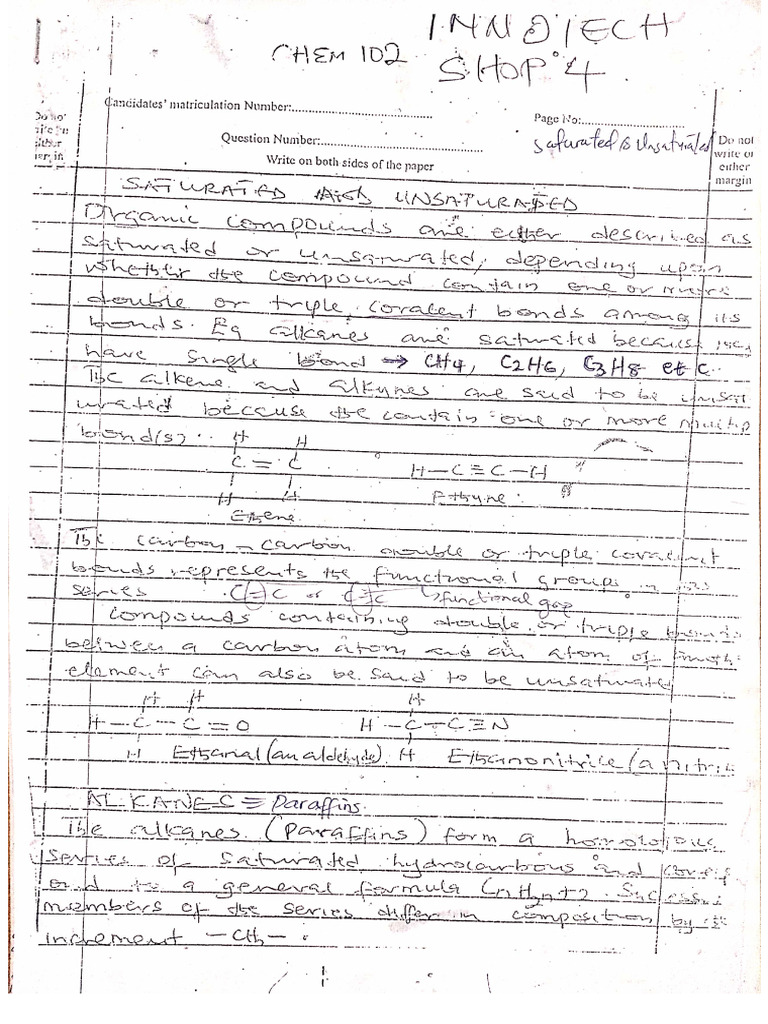 INNOTECH
CHEM 102
SHOP 4
Candidates' matriculation Number:
Page No:
Question Number:
saturated & Unsaturated
Write on both sides of the paper
Do not
write on
either
margin
SATURATED AND UNSATURATED
Organic compounds are either described as
saturated or unsaturated, depending upon
whether the compound contain one or more
double or triple covalent bonds among its
bonds. Eg alkanes are saturated because they
have single bond → CH4, C2H6, C3H8 etc.
The alkene and alkynes are said to be unsat
urated because the contain one or more multip
bond(s).
H H
C = C
H H
Ethene
H-C≡C-H
Ethyne
The carbon-carbon double or triple covalent
bonds represents the functional groups in
series C=C or C≡C functional gap
Compounds containing double or triple bonds
between a carbon atom and an atom of
element can also be said to be unsaturated
H H
H-C-C=O
H
Ethanal (an aldehyde)
H
H-C-C≡N
H
Ethanonitrice (a nitri
ALKANES ≡ Paraffins
The alkanes (paraffins) form a homologous
series of saturated hydrocarbons and
ond to a general formula CnH2n+2. Successi
members of the series differ in composition by
increment -CH2-